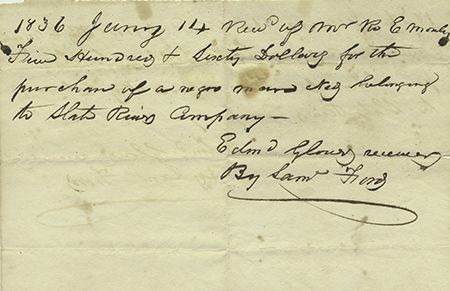 1836 Jany 14 Recd of Mr Ro E
Five Hundred & Sixty Dollars for the
purchase of a negro man Ned belonging
to Slate River Company —
Edmd Glover receiver
By Saml Ford